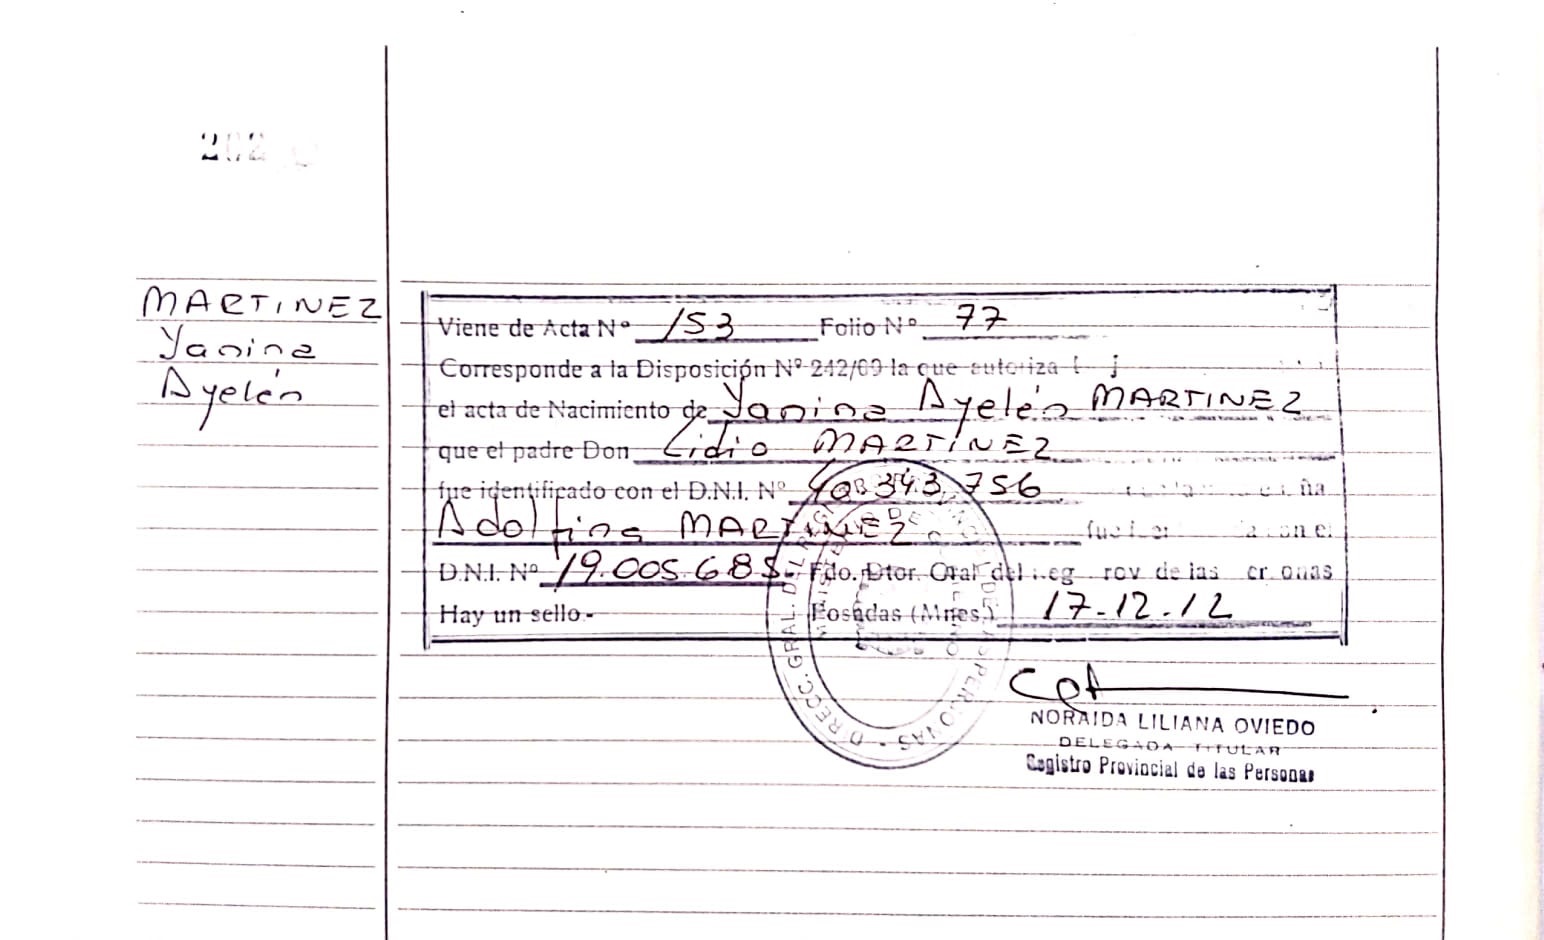 MARTINEZ
Yanina
Ayelén
Viene de Acta Nº 153 Folio Nº 77
Corresponde a la Disposición Nº 242/69 la que autoriza
el acta de Nacimiento de Yanina Ayelén MARTINEZ
que el padre Don Lidio MARTINEZ
fue identificado con el D.N.I. Nº 343.756
Adolfina MARTINEZ
D.N.I. Nº 19.005.685- Fdo. Dtor. Gral del de las
Hay un sello.- Posadas (Mnes.) 17-12-12
DIRECC. GRAL. DEL REG PERSONAS
NORAIDA LILIANA OVIEDO
DELEGADA TITULAR
Registro Provincial de las Personas